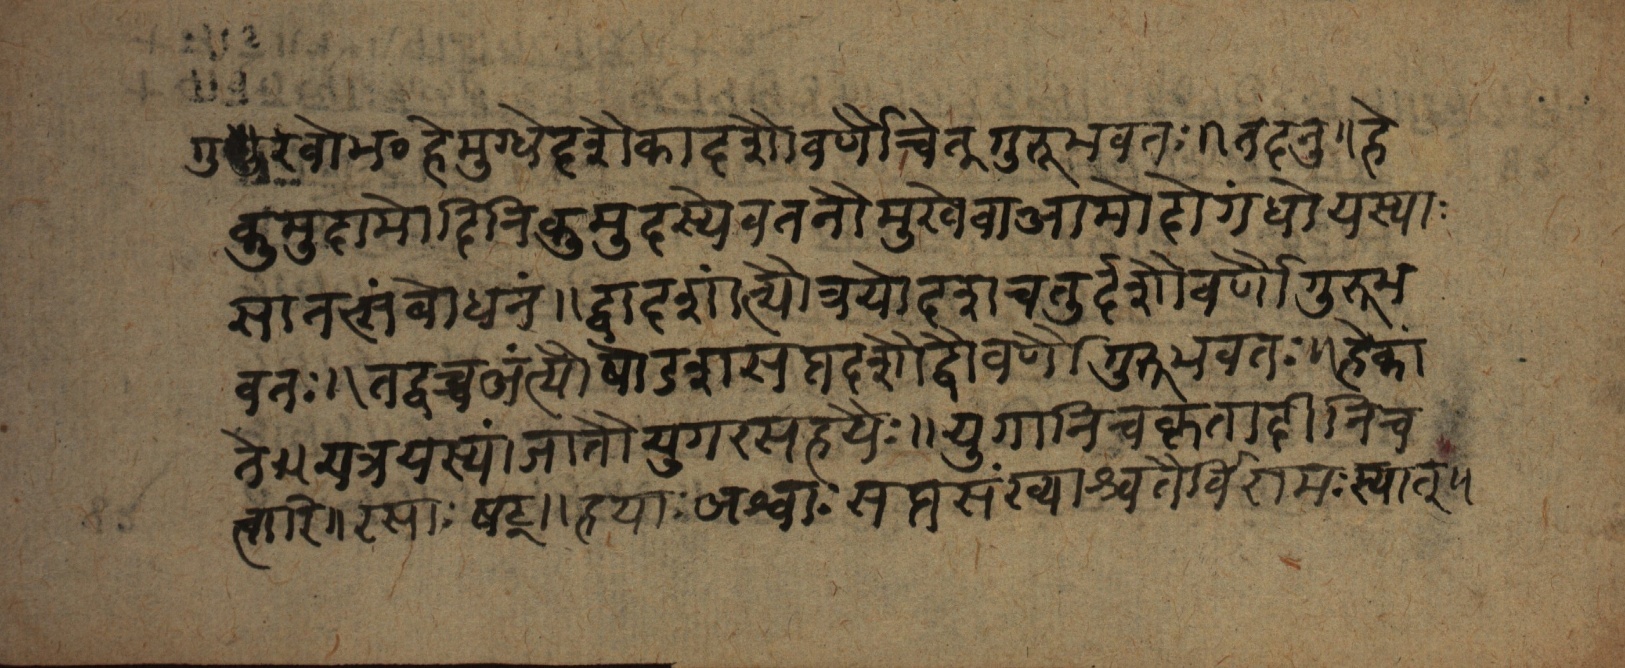 गुरवोभ० हेमुग्धेदशैकादशौवर्णौचेत् गुरूभवतः॥ तदनु॥ हे
कुमुदामोदिनिकुमुदस्येवतनौमुखेवाआमोदोगंधोयस्याः
सातत्संबोधनं॥ द्वादशांत्यौत्रयोदशचतुर्दशौवर्णौगुरूभ
वतः॥ तद्वच्चअंत्यौषोडशसप्तदशौद्वौवर्णौगुरूभवतः॥ हेकां
ते॥ यत्रयस्यांजातौयुगरसहयैः॥ युगानिचकृतादीनिच
त्वारि॥ रसाः षट्॥ हयाः अश्वाः सप्तसंख्याश्चतैर्विरामः स्यात्॥